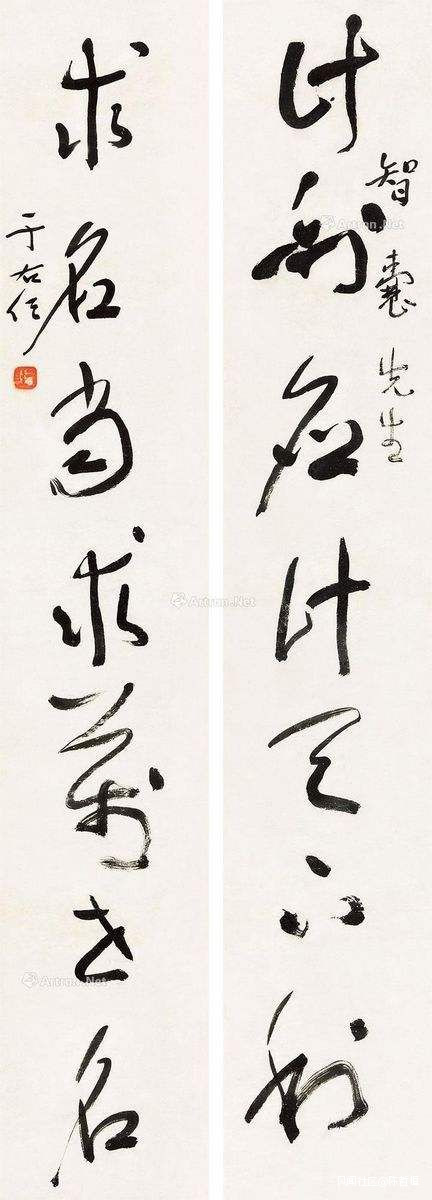 智囊先生
計利應計天下利
求名當求萬世名
于右任
Artron.Net
Artron.Net
Artron.Net
Artron.Net